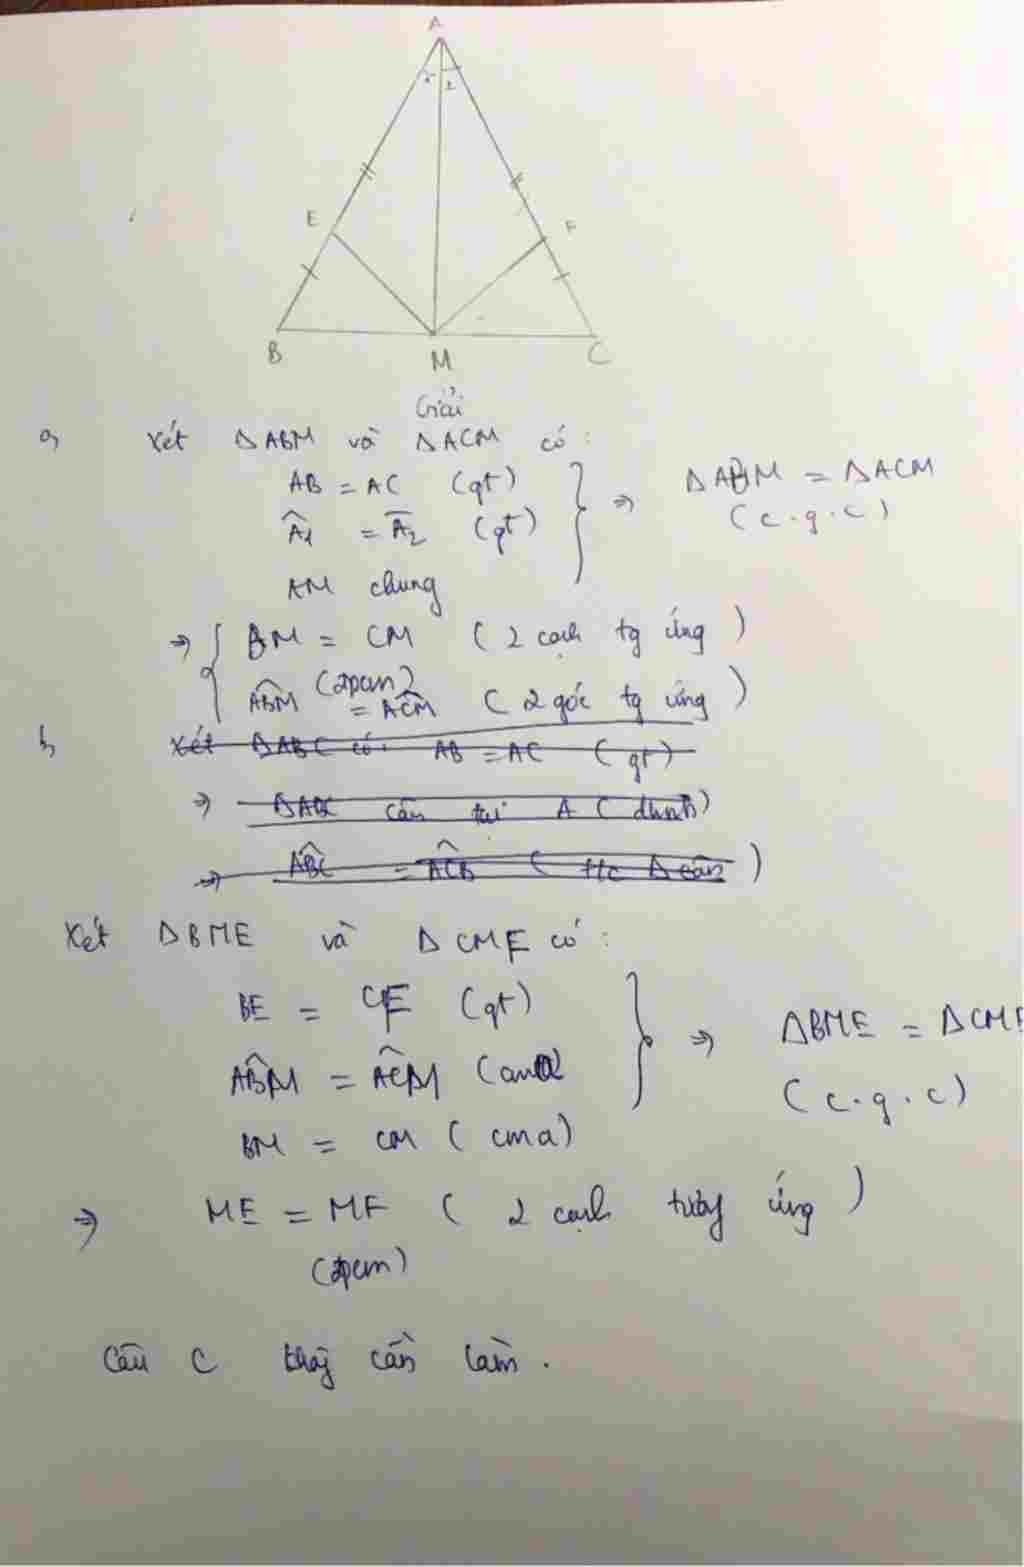 A
1 2
E F
B M C
Giải
a, Xét ΔABM và ΔACM có:
AB = AC (gt)
Â1 = Â2 (gt)
AM chung
⇒ ΔABM = ΔACM
(c.g.c)
⇒ BM = CM (2 cạnh tg ứng)
(đpcm)
ABM = ACM (2 góc tg ứng)
b, Xét ΔABC có: AB = AC (gt)
⇒ ΔABC cân tại A (dhnb)
⇒ ABC = ACB (t/c Δ cân)
Xét ΔBME và ΔCMF có:
BE = CF (gt)
ABM = ACM (cma)
BM = CM (cma)
⇒ ΔBME = ΔCMF
(c.g.c)
⇒ ME = MF (2 cạnh tương ứng)
(đpcm)
Câu C thầy cần làm.